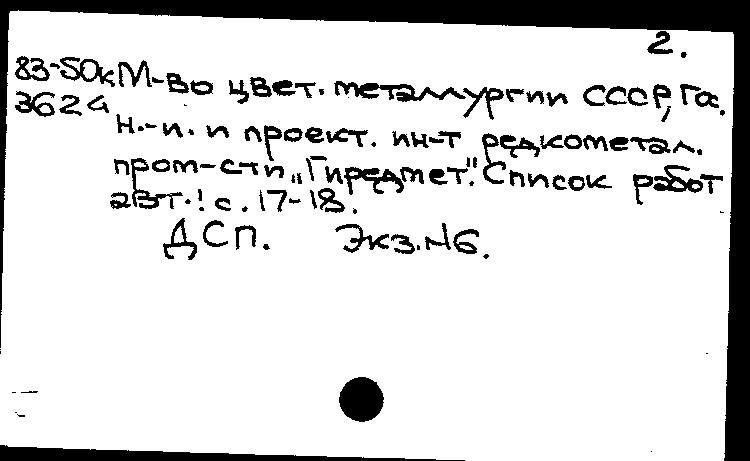 2.
83-50к М-во цвет. металлургии СССР, Гос.
362а
н.-и. и проект. ин-т редкометал.
пром-сти „Гиредмет". Список работ
авт.: с. 17-18.
ДСП. Экз. N6.